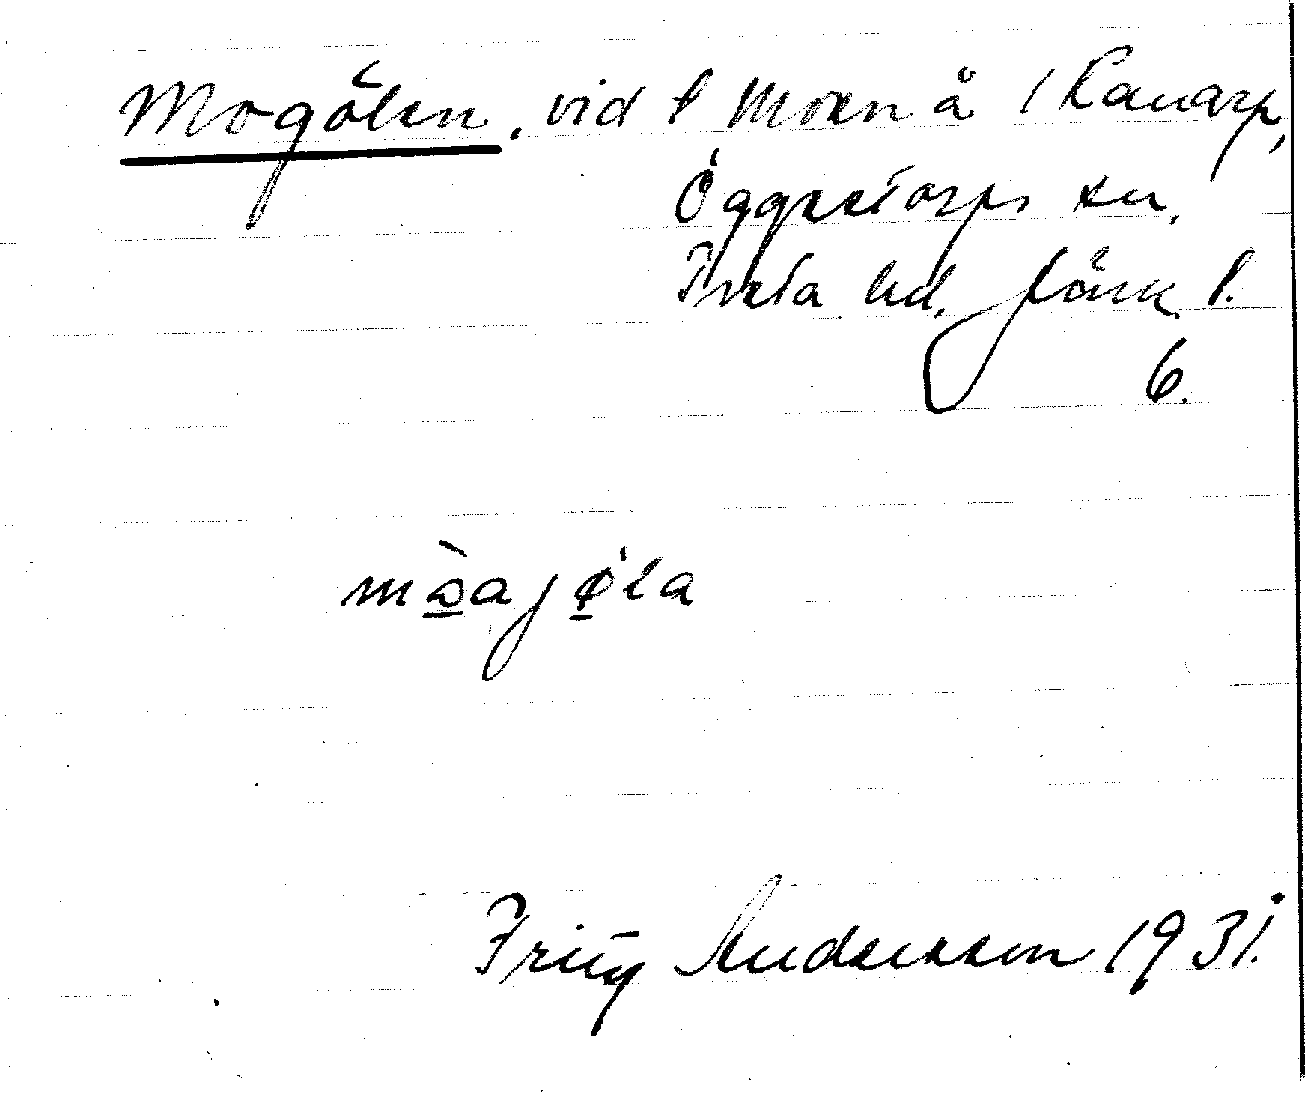 Mogölen, vid l Moen å / Ramarp,
Öggestorps sn,
Tveta hd, Jönk l.
6.
mòajöla
Fritz Andersson 1931.